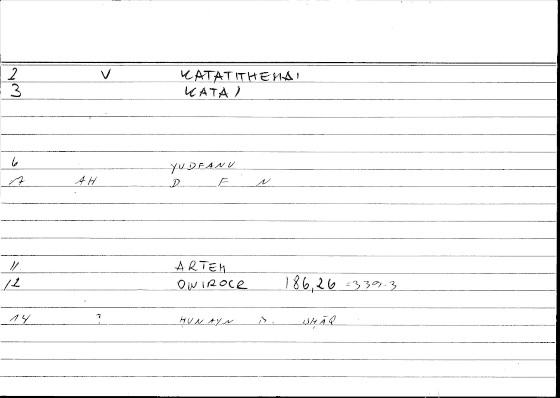 2 V KATATITHENAI
3 KATA)
6 YUDFANU
7 AH D F N
11 ARTEM
12 ONIROCR 186,26 =339.3
14 ? ḤUNAYN B. ISḤĀQ